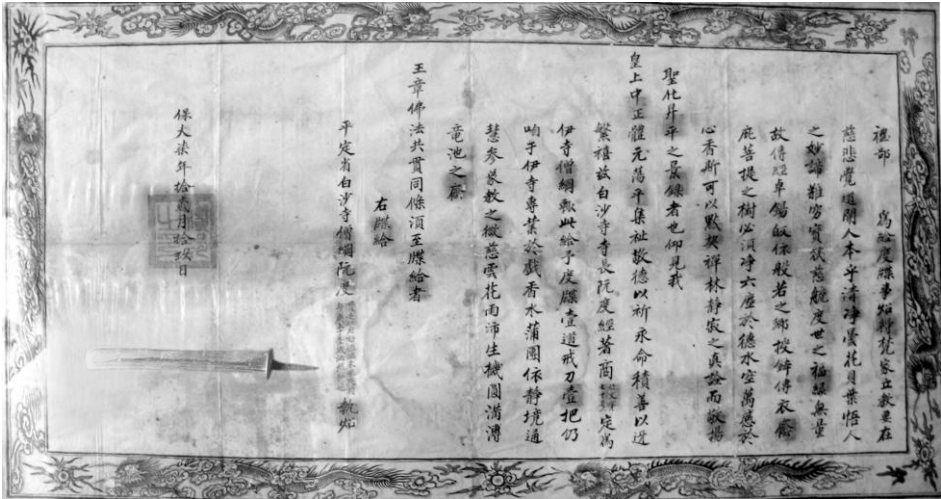 禮部 為給度牒事炤得梵家立教要在
慈悲覺道開人本乎清淨曇花貝葉悟人
之妙諦雖労寶筏慈艘度世之福緣無量
故傳經卓錫皈依般若之鄉授鉢傳衣廕
庇菩提之樹必須淨六塵於德水空萬慮於
心香斯可以默契禪林靜寂之真詮而敬揚
聖化昇平之景籙者也仰見我
皇上中正體元蕩平集祉敬德以祈永命積善以迓
繁禧茲白沙寺寺長阮度經著商定為
伊寺僧綱輒此給予度牒壹道戒刀壹把仍
咱于伊寺專業於戲香水蒲團依靜境通
慧參眾教之微慈雲花雨沛生機圓滿溥
竜池之
王章佛法共貫同條須至牒給者
右牒給
平定省白沙寺僧綱阮度 執炤
保大柒年拾貳月拾玖日